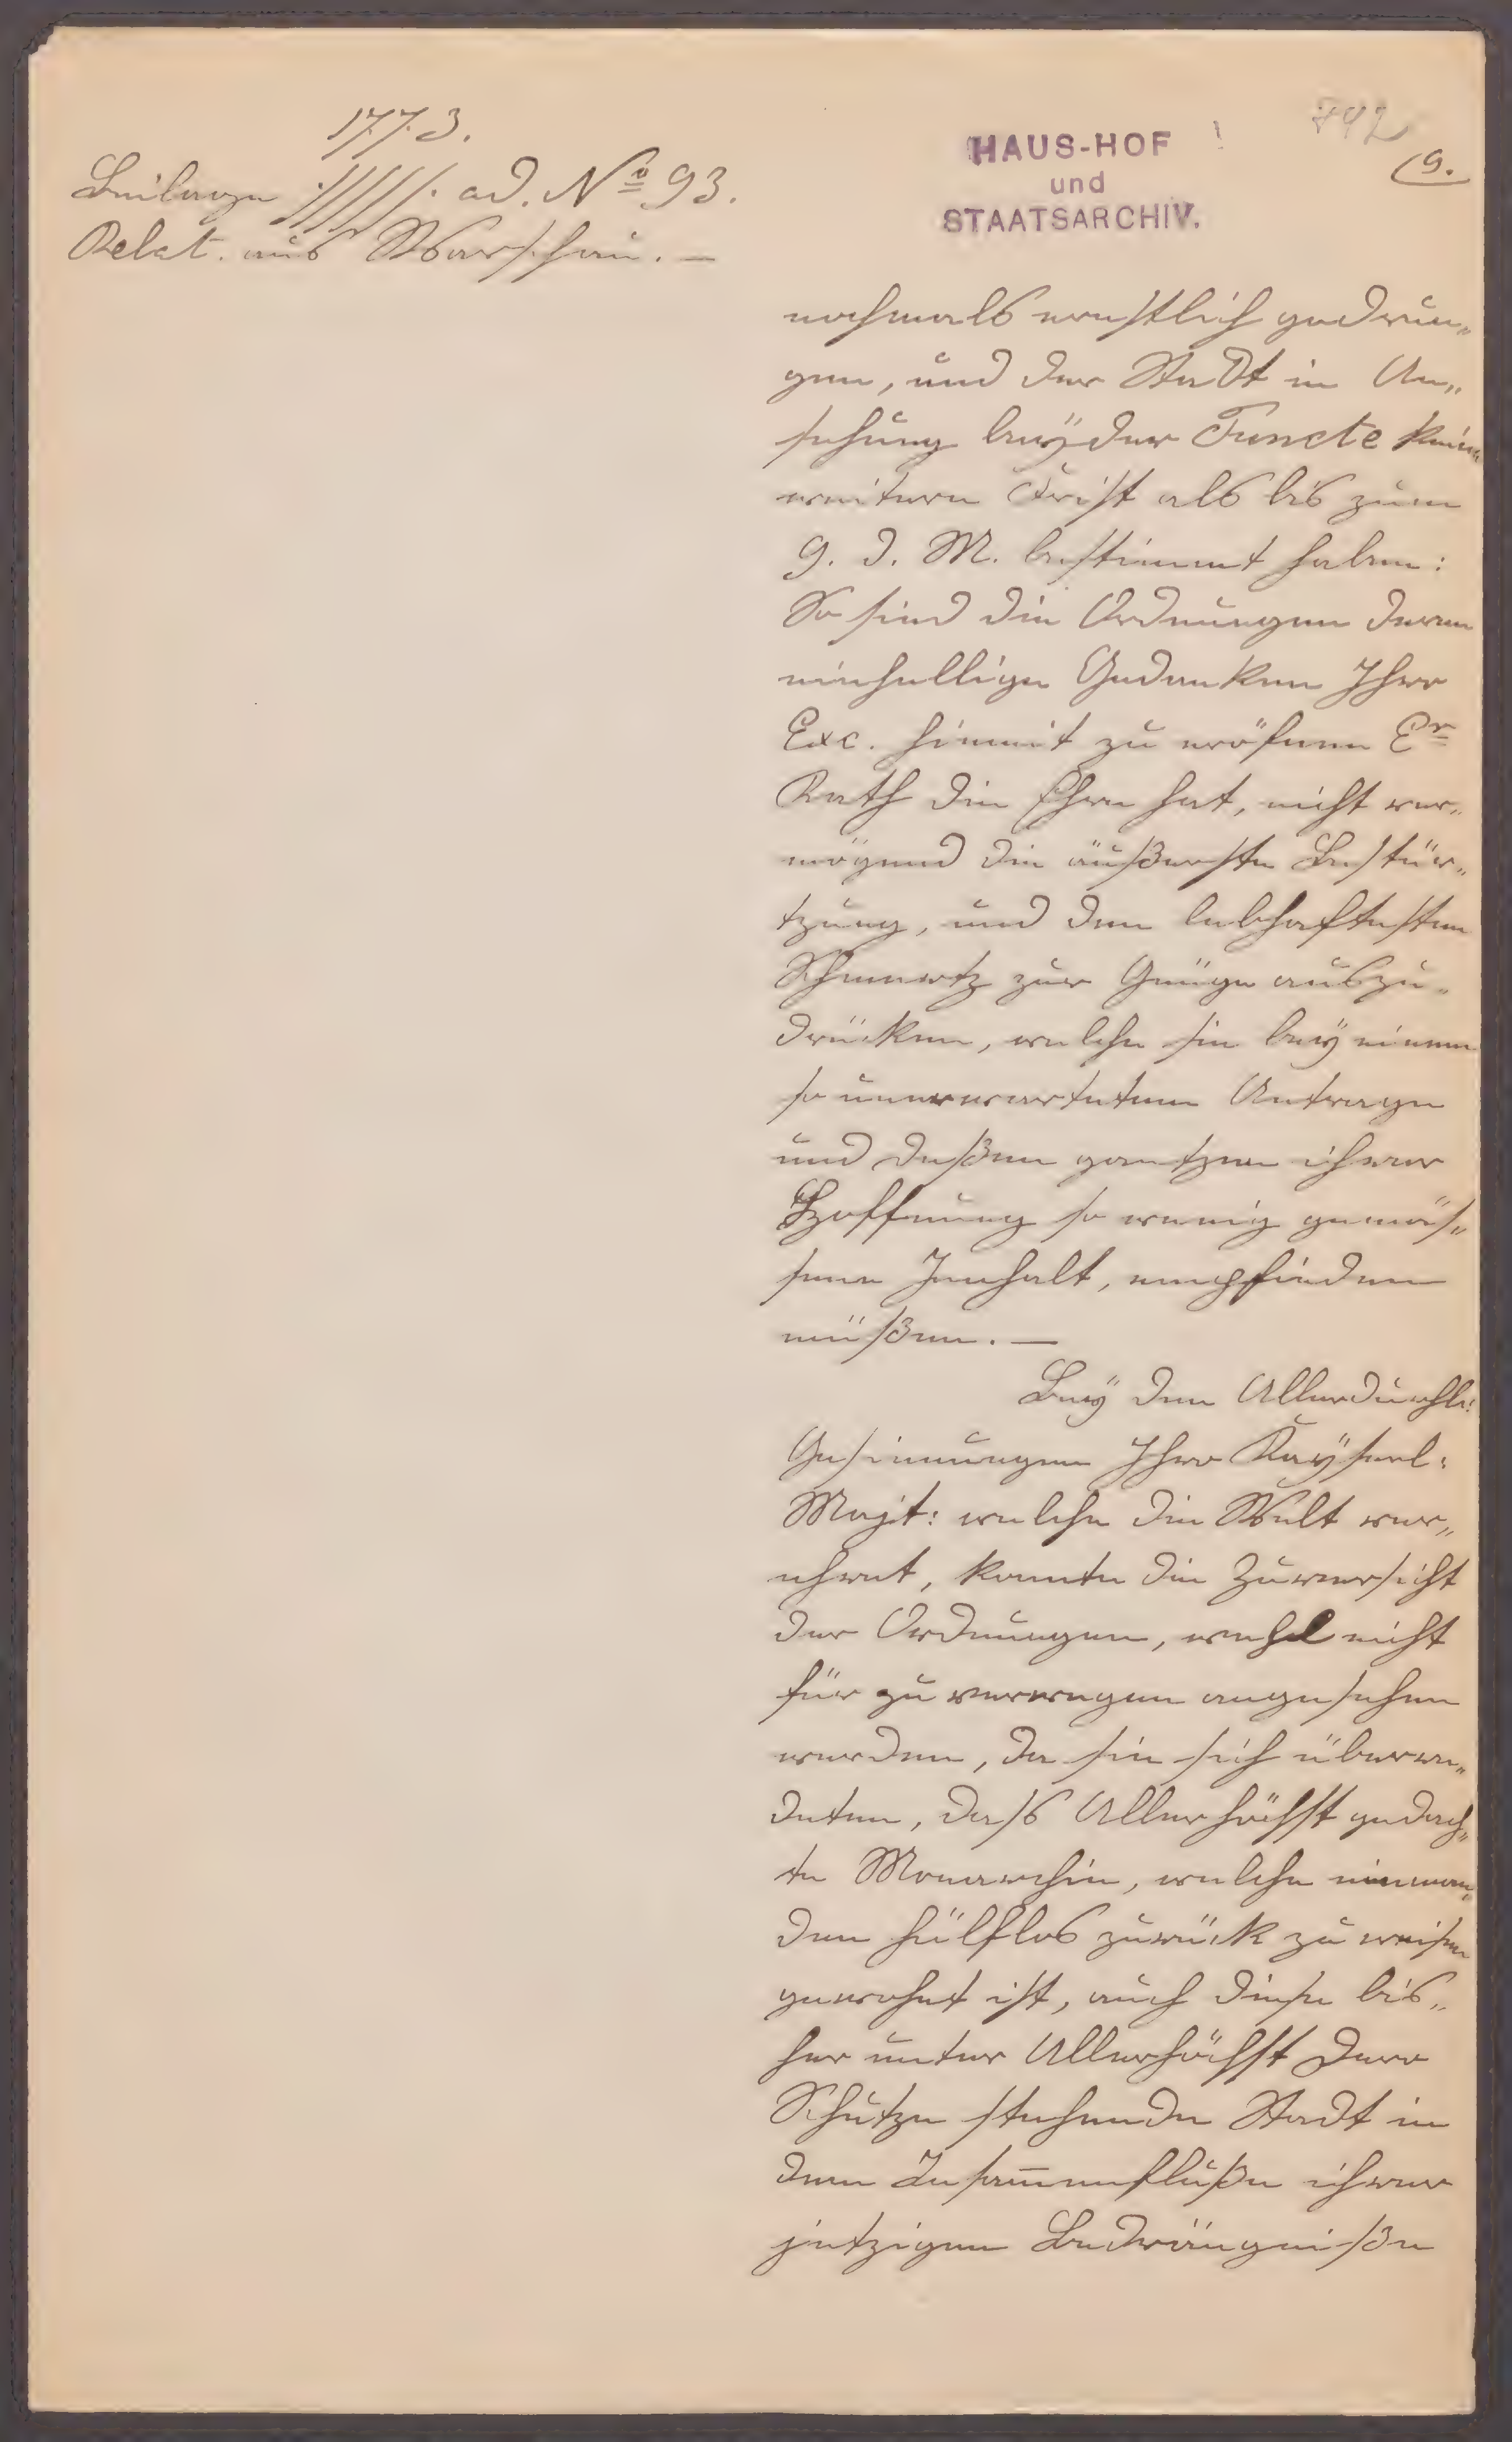 1773.
Beilage ./////. ad. No 93.
Relat. aus Warschau. —
HAUS-HOF
und
STAATSARCHIV.
742
(9.
nochmals ernstlich gedrun„
gen, und der Stadt in An„
sehung beÿder Puncte keine
weitere Frist als bis zum
9. d. M. bestimmt haben:
So sind die Ordnungen deren
einhellige Gedanken Ihro
Exc. hiemit zu eröfnen Er
Rath die Ehre hat, nicht ver„
mögend die äußerste Bestür„
tzung, und den lebhaftesten
Schmertz zur Gnüge auszu„
drücken, welche sie beÿ einem
so unerwarteten Antrage
und deßen gantzen ihrer
Hoffnung so wenig gemäs„
senen Innhalt, empfinden
müßen. —
Beÿ den Allerdurchl:
Gesinnungen Ihro Kaÿserl:
Majt: welche die Welt ver„
ehret, konnte die Zuversicht
der Ordnungen, wohl nicht
für zu verwegen angesehen
werden, da sie sich überre„
deten, dass Allerhöchst gedach„
te Monarchin, welche nieman„
den hülflos zurück zu weisen
gewohnt ist, auch diese bis„
her unter Allerhöchst Dero
Schutze stehende Stadt in
dem Zusam̅enfluße ihrer
jetzigen Bedrängniße